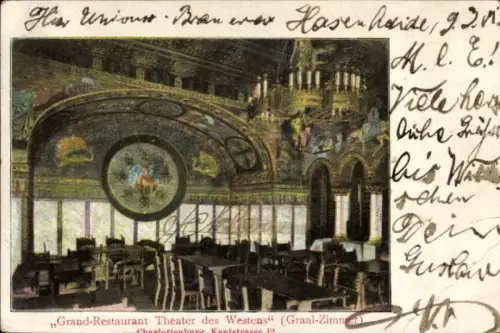 Hier Unions-Brauerei Hasenheide, 9.3.01
M. l. E.!
Viele herz
liche Grüße
bis Wie
schen
Dein
Gustav
„Grand-Restaurant Theater des Westens“ (Graal-Zimmer)
Charlottenburg, Kantstrasse 12.